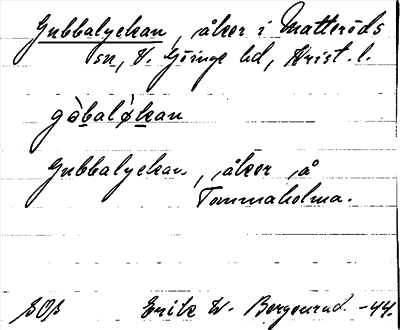 Gubbalyckan, åker i Matteröds
sn, V. Göinge hd, Krist. l.
gòbalø̀kan
Gubbalyckan, åker å
Tommaholma.
Erik W. Bergenrud. -44.